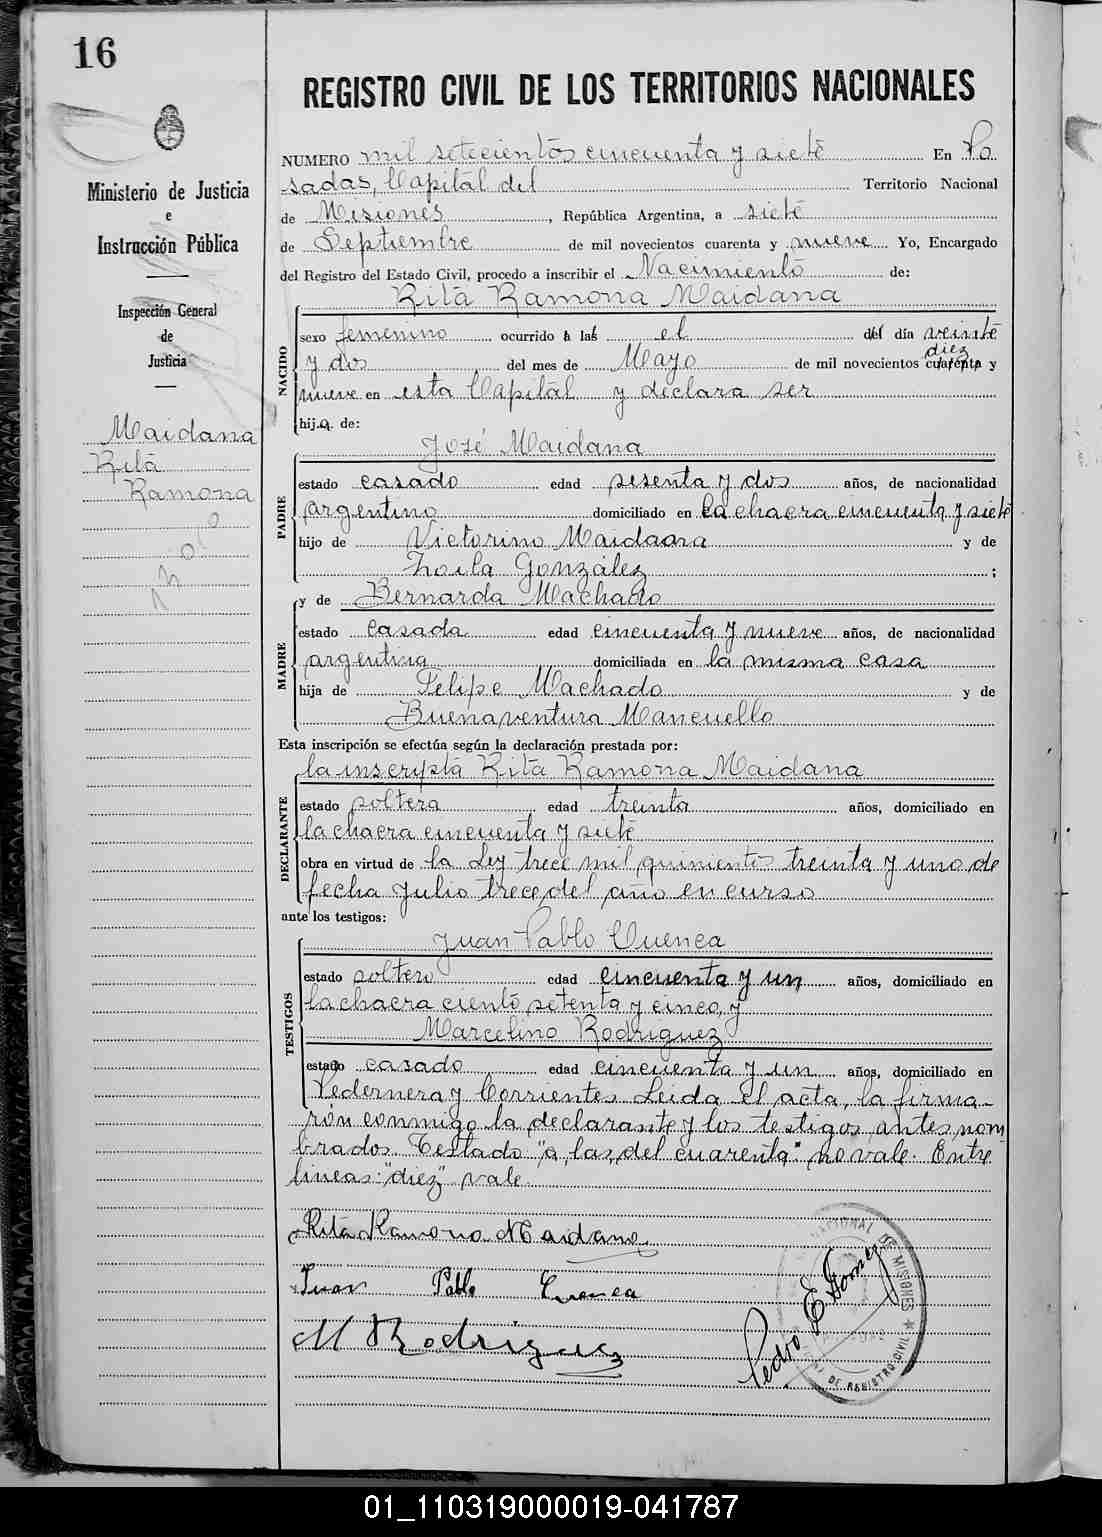 16
REGISTRO CIVIL DE LOS TERRITORIOS NACIONALES
Ministerio de Justicia
e
Instrucción Pública
Inspección General
de
Justicia
Maidana
Rita
Ramona
NUMERO mil setecientos cincuenta y siete En Po
sadas, Capital del Territorio Nacional
de Misiones, República Argentina, a siete
de Septiembre de mil novecientos cuarenta y nueve Yo, Encargado
del Registro del Estado Civil, procedo a inscribir el Nacimiento de:
Rita Ramona Maidana
NACIDO
sexo femenino ocurrido a las el del día veinte
diez
y dos del mes de Mayo de mil novecientos cuarenta y
nueve en esta Capital y declara ser
hija de:
José Maidana
PADRE
estado casado edad sesenta y dos años, de nacionalidad
argentino domiciliado en la chacra cincuenta y siete
hijo de Victorino Maidana y de
Zoila González ;
y de Bernarda Machado
MADRE
estado casada edad cincuenta y nueve años, de nacionalidad
argentina domiciliada en la misma casa
hija de Felipe Machado y de
Buenaventura Mancuello
Esta inscripción se efectúa según la declaración prestada por:
la inscripta Rita Ramona Maidana
DECLARANTE
estado soltera edad treinta años, domiciliado en
la chacra cincuenta y siete
obra en virtud de la Ley trece mil quinientos treinta y uno de
fecha Julio trece del año en curso
ante los testigos:
Juan Pablo Cuenca
TESTIGOS
estado soltero edad cincuenta y un años, domiciliado en
la chacra ciento setenta y cinco, y
Marcelino Rodriguez
estado casado edad cincuenta y un años, domiciliado en
Pedernera y Corrientes Leida el acta, la firma-
rón conmigo la declarante y los testigos antes nom
brados Testado "a, las, del cuarenta" no vale. Entre
lineas: "diez" vale.
Rita Ramona Maidana
Juan Pablo Cuenca
M Rodriguez
Pedro E. Gomez
NACIONAL DE MISIONES
DE REGISTRO CIVIL
01_110319000019-041787